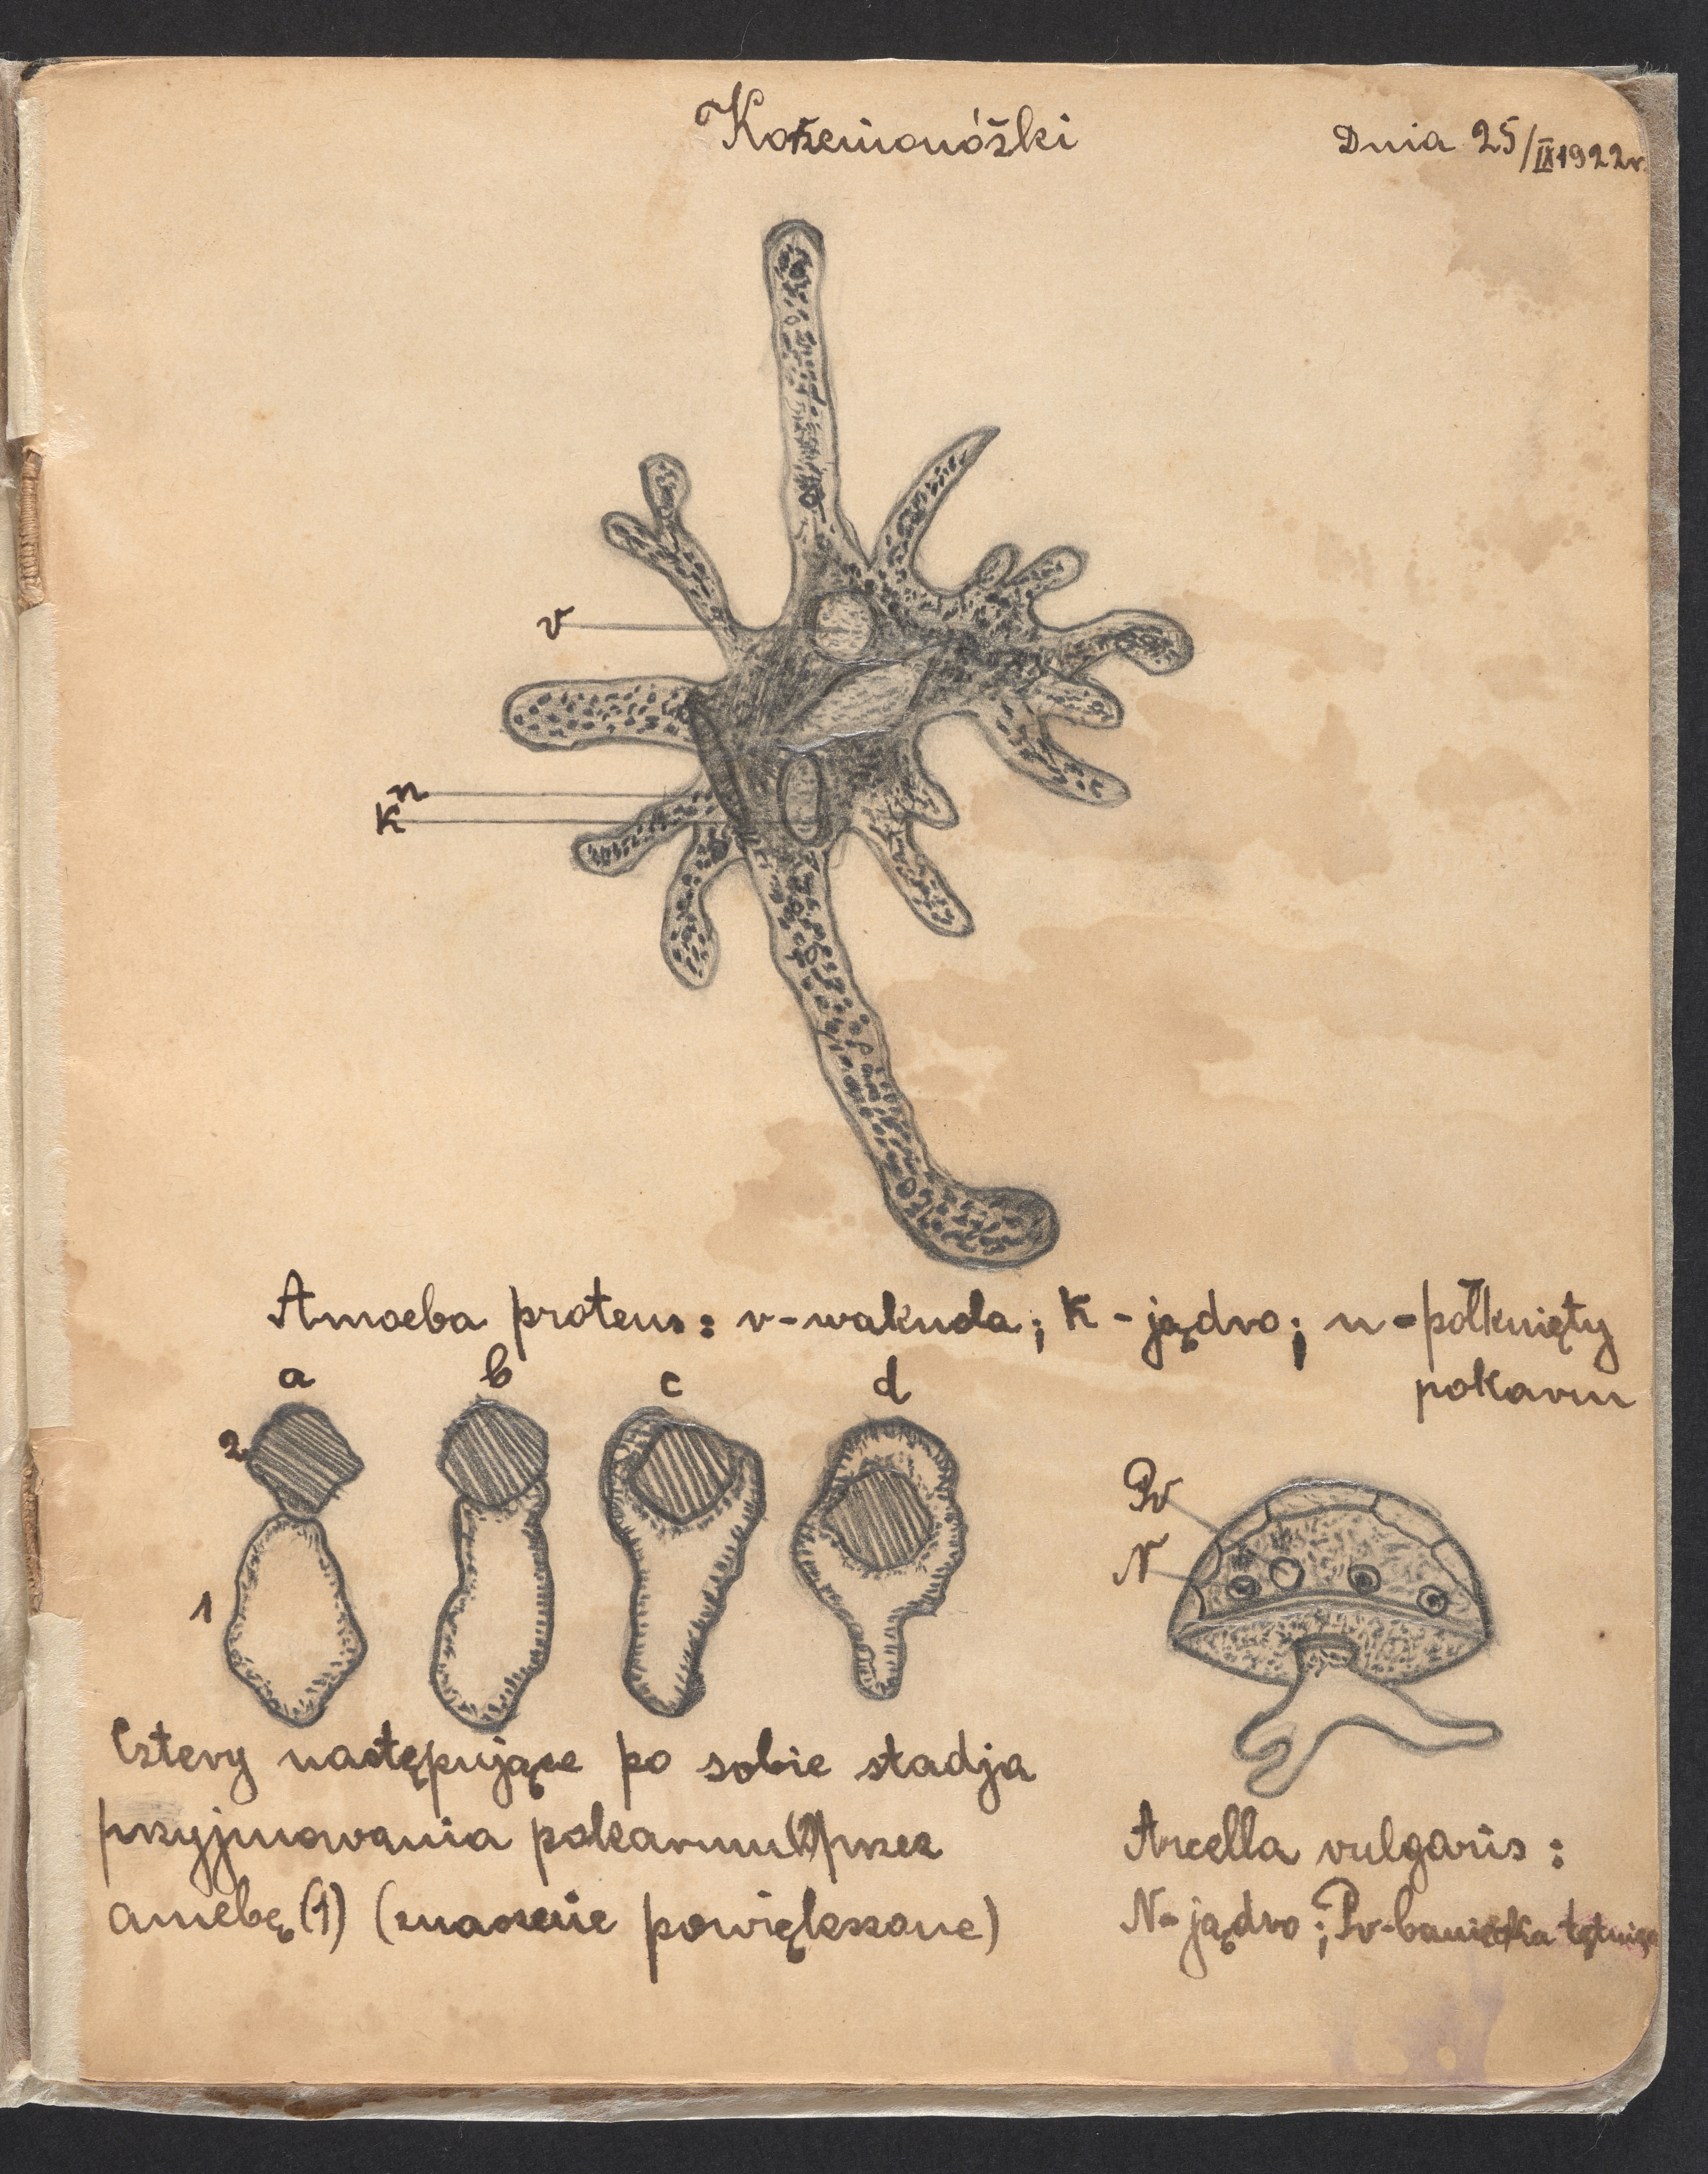 Korzenionóżki
Dnia 25/IX 1922r.
v
n
k
Amoeba proteus: v-wakuola; k-jądro; n-połknięty
pokarm
a b c d
2
1
Pv
N
Cztery następujące po sobie stadja
przyjmowania pokarmu (2) przez
amebę (1) (znacznie powiększone)
Arcella vulgaris:
N-jądro; Pv-banieczka tętniąca